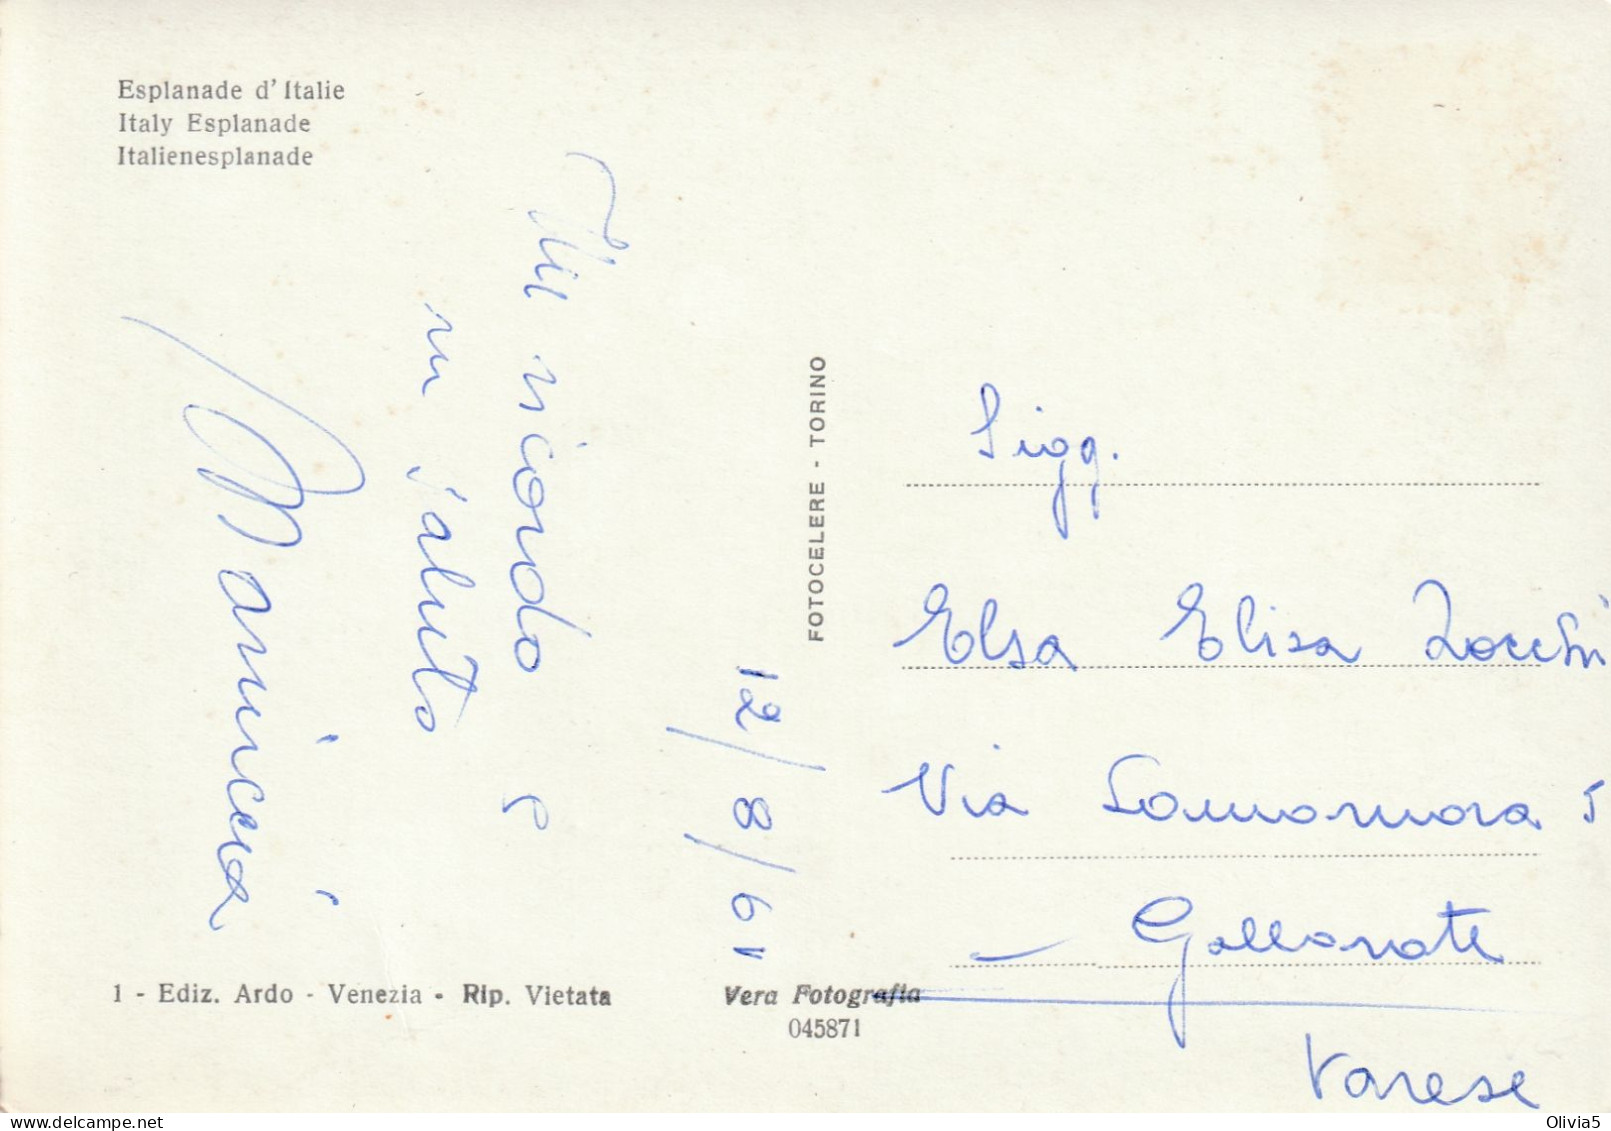 Esplanade d'Italie
Italy Esplanade
Italienesplanade
Un ricordo e
un saluto
Mariuccia
12/8/61
FOTOCELERE - TORINO
Sigg.
Elsa Elisa Zocchi
Via Sommomora 5
Gallarate
Varese
1 - Ediz. Ardo - Venezia - Rip. Vietata
Vera Fotografia
045871
Olivia5